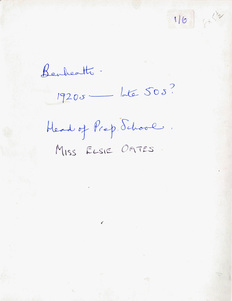 1/6
1920s — late 50s?
Head of Prep School.
MISS ELSIE OATES